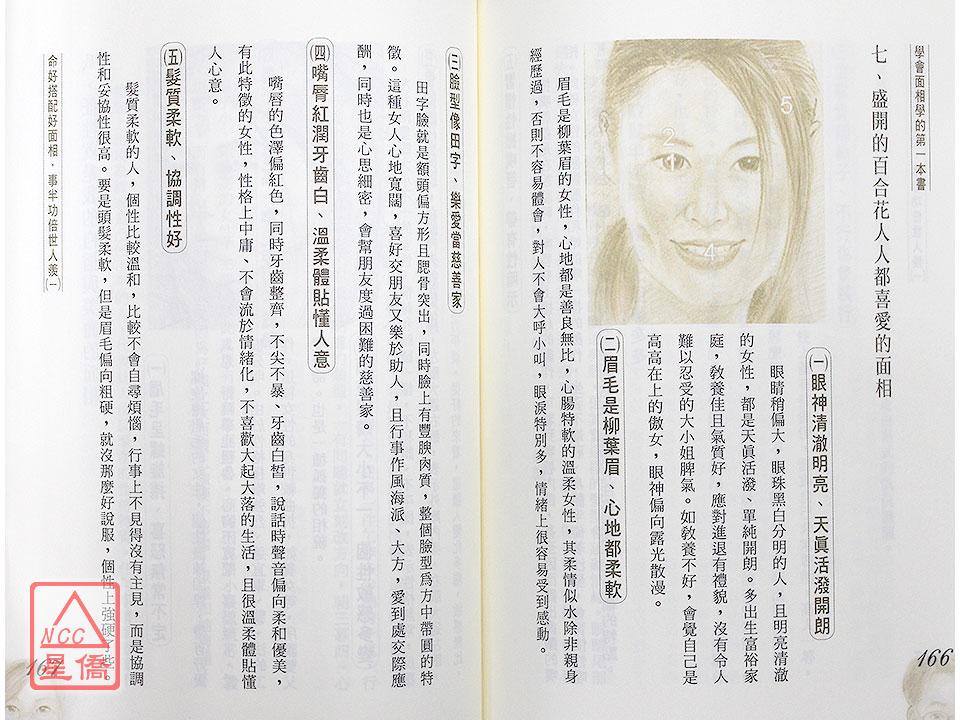 學會面相學的第一本書
七、盛開的百合花人人都喜愛的面相
5
2
1
4
㈠眼神清澈明亮、天眞活潑開朗
眼睛稍偏大，眼珠黑白分明的人，且明亮清澈
的女性，都是天眞活潑、單純開朗。多出生富裕家
庭，教養佳且氣質好，應對進退有禮貌，沒有令人
難以忍受的大小姐脾氣。如教養不好，會覺自己是
高高在上的傲女，眼神偏向露光散漫。
㈡眉毛是柳葉眉、心地都柔軟
眉毛是柳葉眉的女性，心地都是善良無比，心腸特軟的溫柔女性，其柔情似水除非親身
經歷過，否則不容易體會，對人不會大呼小叫，眼淚特別多，情緒上很容易受到感動。
166
㈢臉型像田字、樂愛當慈善家
田字臉就是額頭偏方形且腮骨突出，同時臉上有豐腴肉質，整個臉型爲方中帶圓的特
徵。這種女人心地寬闊，喜好交朋友又樂於助人，且行事作風海派、大方，愛到處交際應
酬，同時也是心思細密，會幫朋友度過困難的慈善家。
㈣嘴脣紅潤牙齒白、溫柔體貼懂人意
嘴唇的色澤偏紅色，同時牙齒整齊，不尖不暴、牙齒白皙，說話時聲音偏向柔和優美，
有此特徵的女性，性格上中庸、不會流於情緒化，不喜歡大起大落的生活，且很溫柔體貼懂
人心意。
㈤髮質柔軟、協調性好
髮質柔軟的人，個性比較溫和，比較不會自尋煩惱，行事上不見得沒有主見，而是協調
性和妥協性很高。要是頭髮柔軟，但是眉毛偏向粗硬，就沒那麼好說服，個性上強硬了些。
命好搭配好面相，事半功倍世人羨㈠
167
NCC
星僑